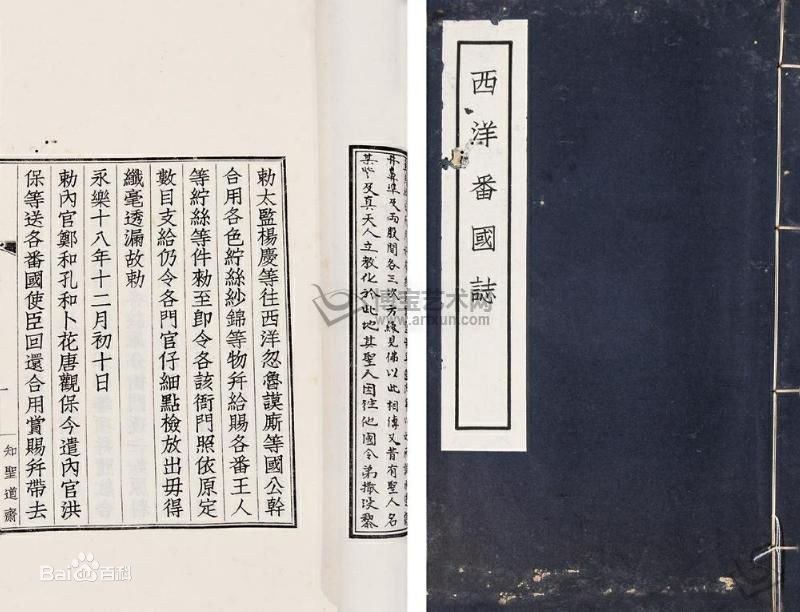 西洋番國誌
并鼻準及兩股間各三次方緣見佛以此相傳又昔有聖人名
某些及真天人立教化於此地其聖人因往他國令弟撒沒黎
勅太監楊慶等往西洋忽魯謨廝等國公幹
合用各色紵絲紗錦等物幷給賜各番王人
等紵絲等件勅至卽令各該衙門照依原定
數目支給仍令各門官仔細點檢放出毋得
纖毫透漏故勅
永樂十八年十二月初十日
勅內官鄭和孔和卜花唐觀保今遣內官洪
保等送各番國使臣回還合用賞賜幷帶去
知聖道齋
博宝艺术网
www.artxun.com
Baidu百科